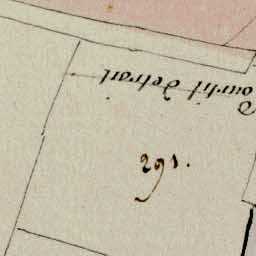 Courtil detroit
291.